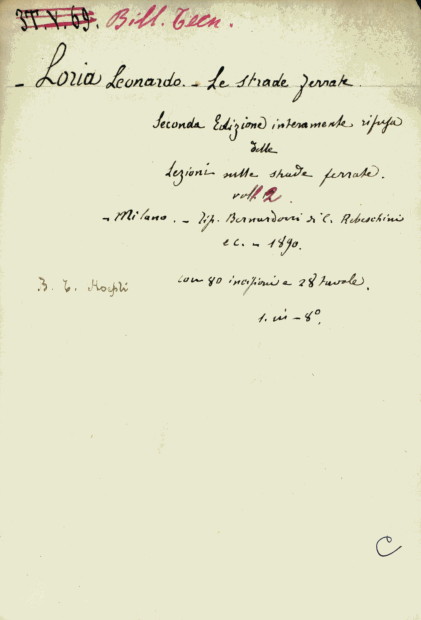 3T. V. 69. Bibl. Tecn.
- Loria Leonardo. - Le strade ferrate.
Seconda Edizione interamente rifusa
delle
Lezioni sulle strade ferrate.
voll. 2
- Milano. - Tip. Bernardoni di C. Rebeschini
e c. - 1890.
con 80 incisioni e 28 tavole.
B. T. Hoepli
1. in - 8º.
C